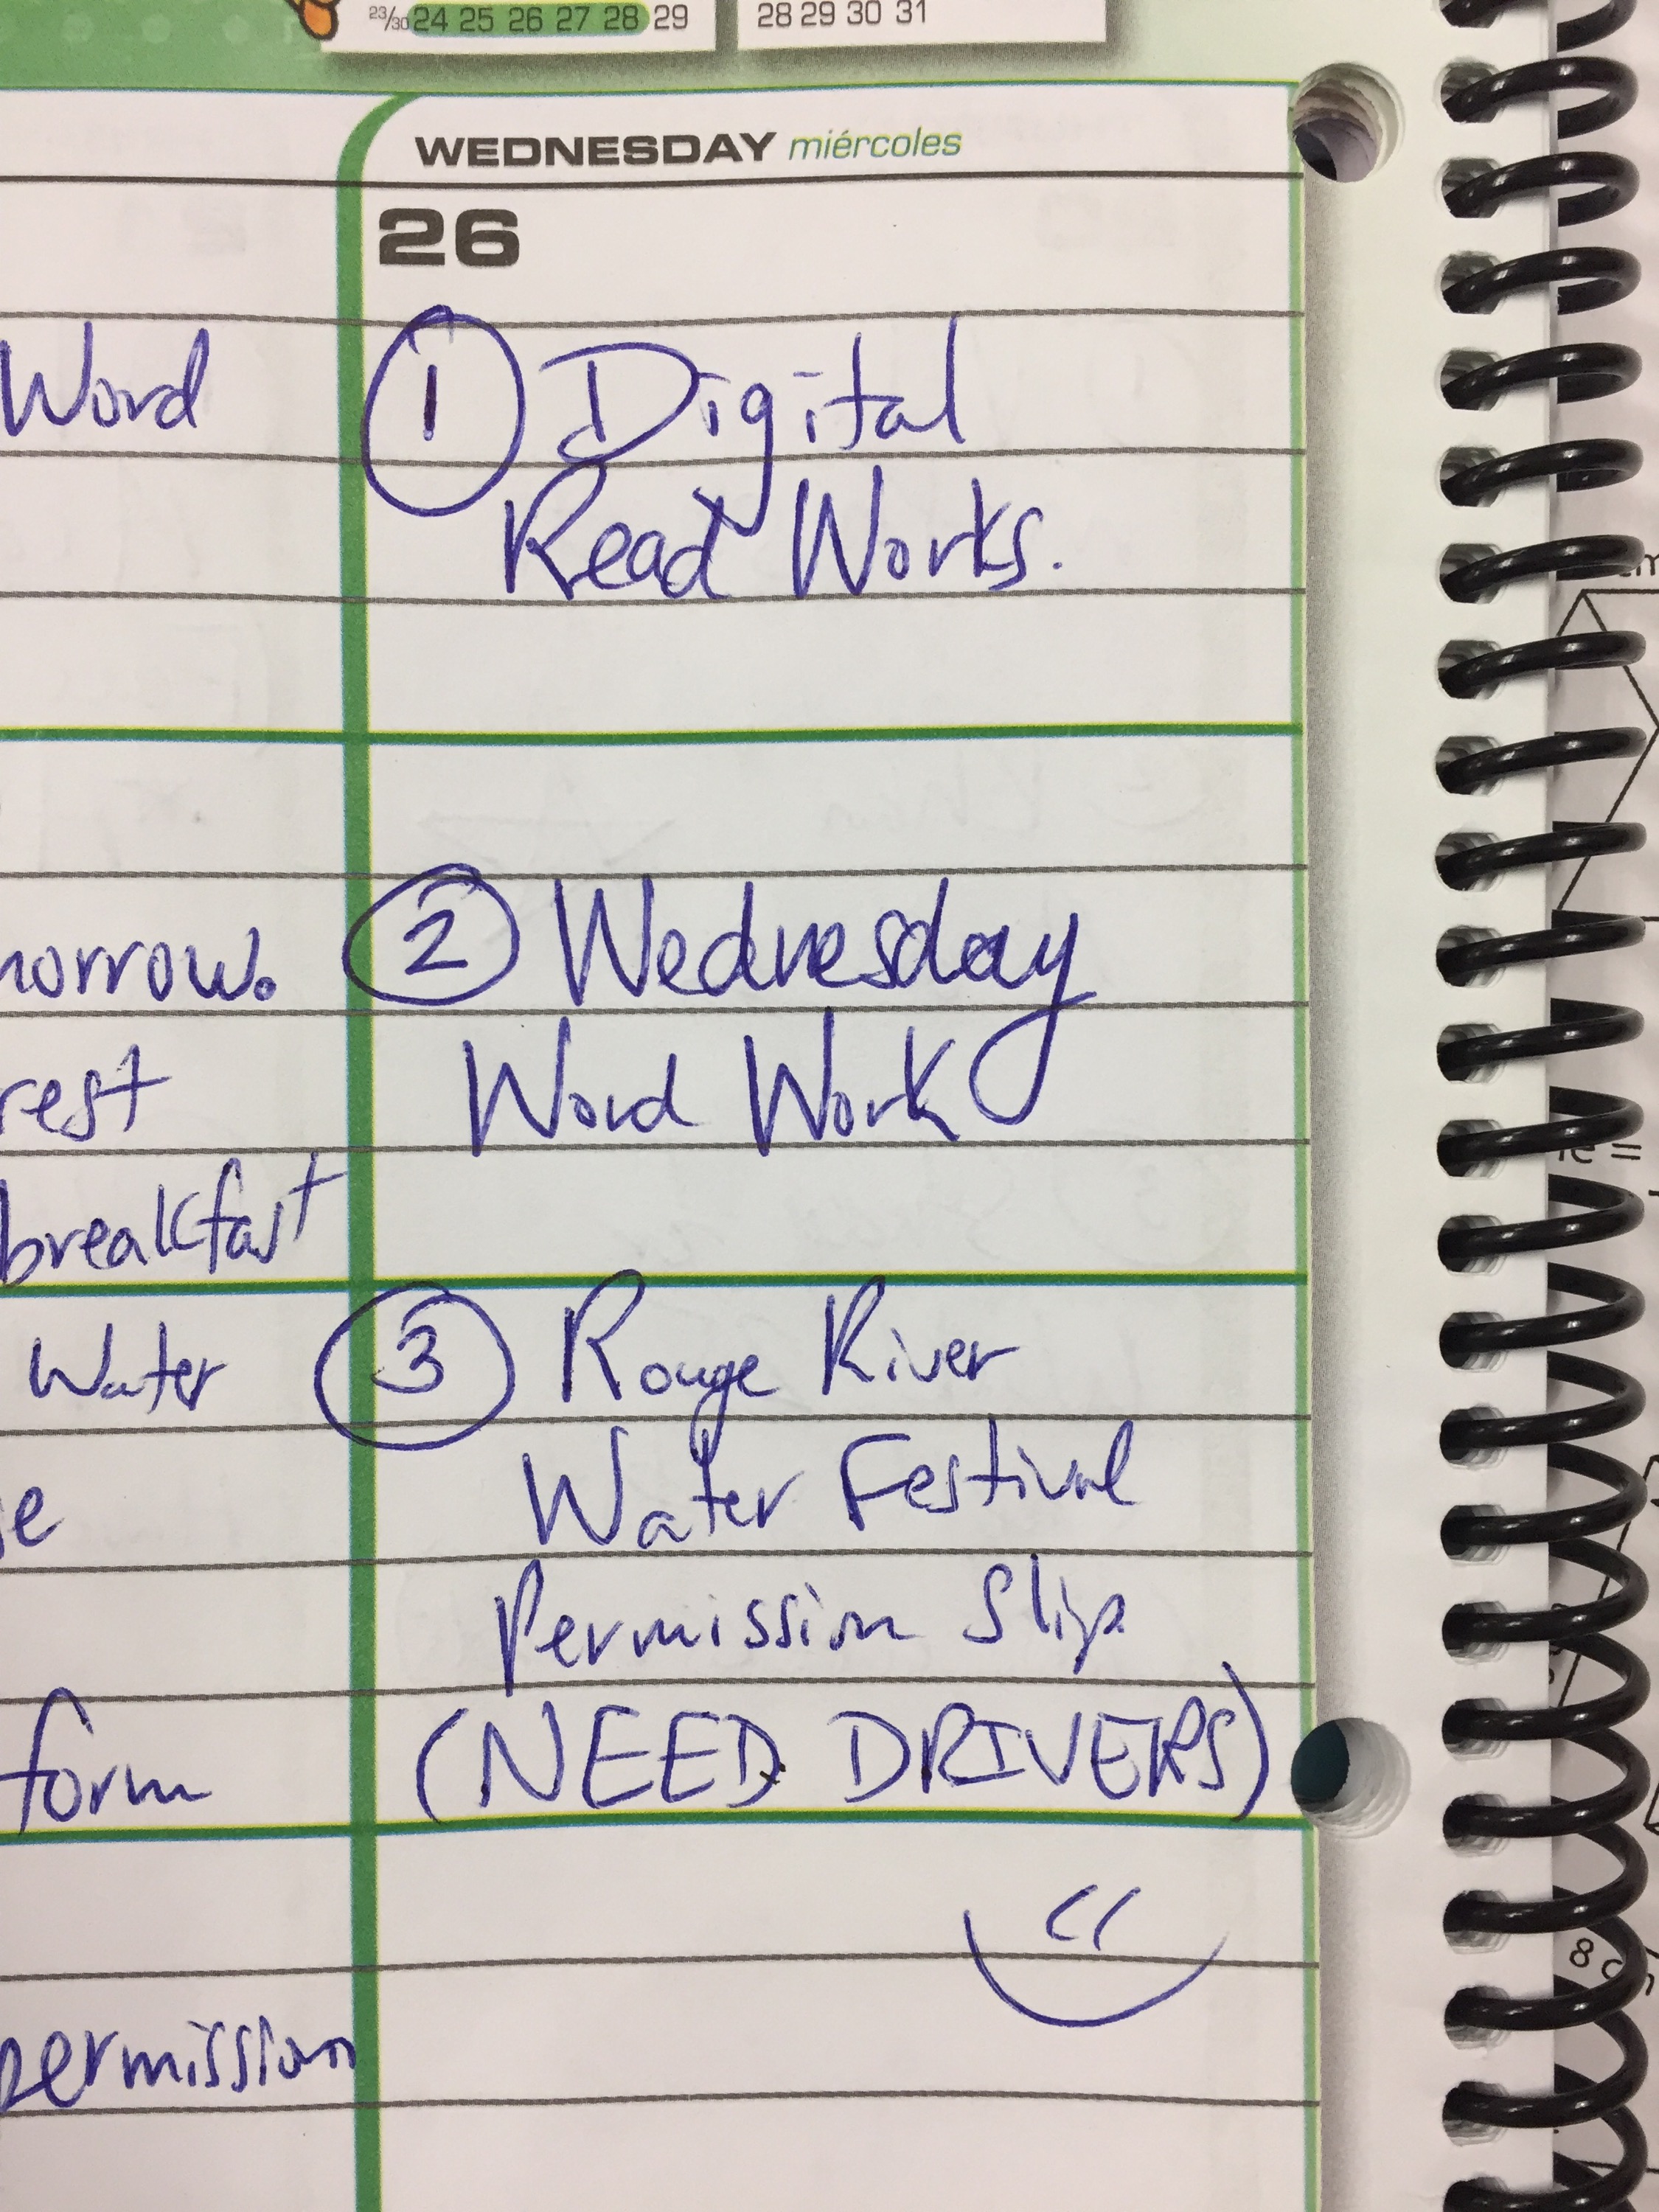 23/30 24 25 26 27 28 29
28 29 30 31
WEDNESDAY miércoles
26
Word
norrow.
rest
breakfast
Water
form
permission
1 Digital
Read Works.
2 Wednesday
Word Work
3 Rouge River
Water Festival
Permission Slip
(NEED DRIVERS)
8 c